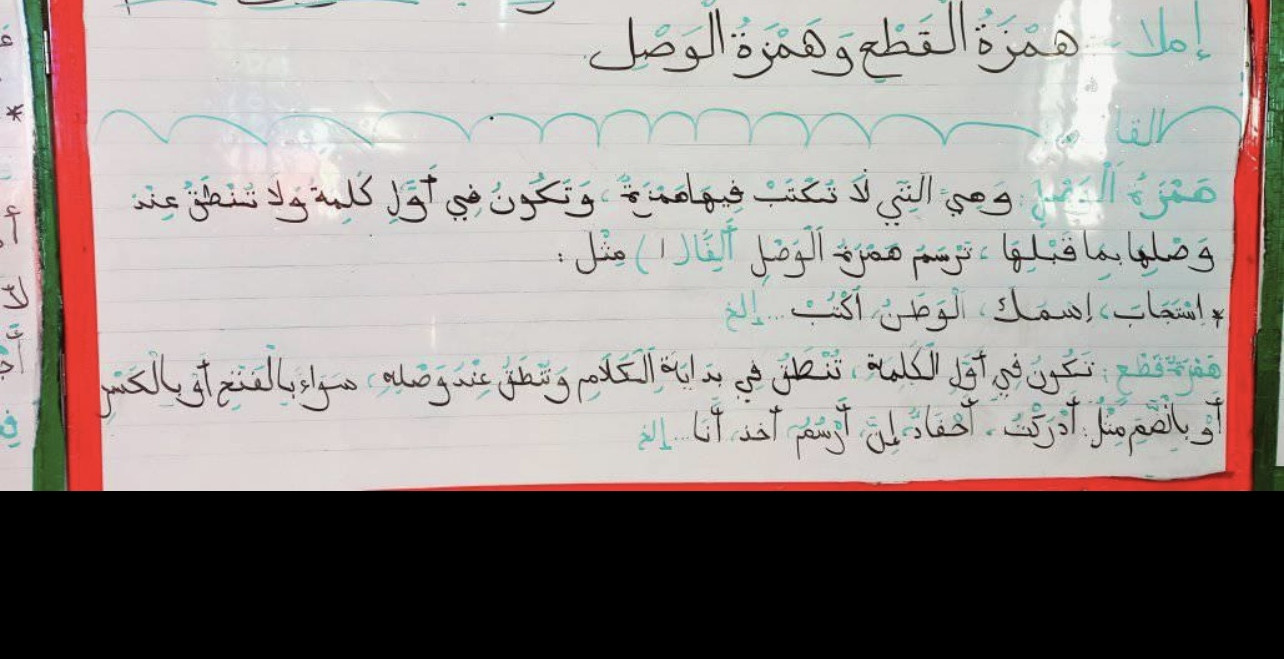 إملاء - هَمْزَةُ الْقَطْعِ وَهَمْزَةُ الْوَصْلِ.
هَمْزَةُ الْوَصْلِ: وَهِيَ الَّتِي لَا تُكْتَبُ فِيهَا هَمْزَةٌ، وَتَكُونُ فِي أَوَّلِ كَلِمَةٍ وَلَا تُنْطَقُ عِنْدَ
وَصْلِهَا بِمَا قَبْلَهَا، تُرْسَمُ هَمْزَةُ الْوَصْلِ أَلِفًا (ا) مِثْل :
* اسْتَجَابَ، إسمك، الْوَطَنُ، اكْتُبْ ... إلخ
هَمْزَةُ قَطْعٍ: تَكُونُ فِي أَوَّلِ الْكَلِمَةِ، تُنْطَقُ فِي بِدَايَةِ الْكَلَامِ وَتُنْطَقُ عِنْدَ وَصْلِهِ، سَوَاءً بِالْفَتْحِ أَوْ بِالْكَسْرِ
أَوْ بِالضَّمِّ مِثْلُ: أَدْرَكْتُ، أَحْفَادٌ، إِنَّ، أَرْسُمُ، أخذ، أَنَا ... إلخ